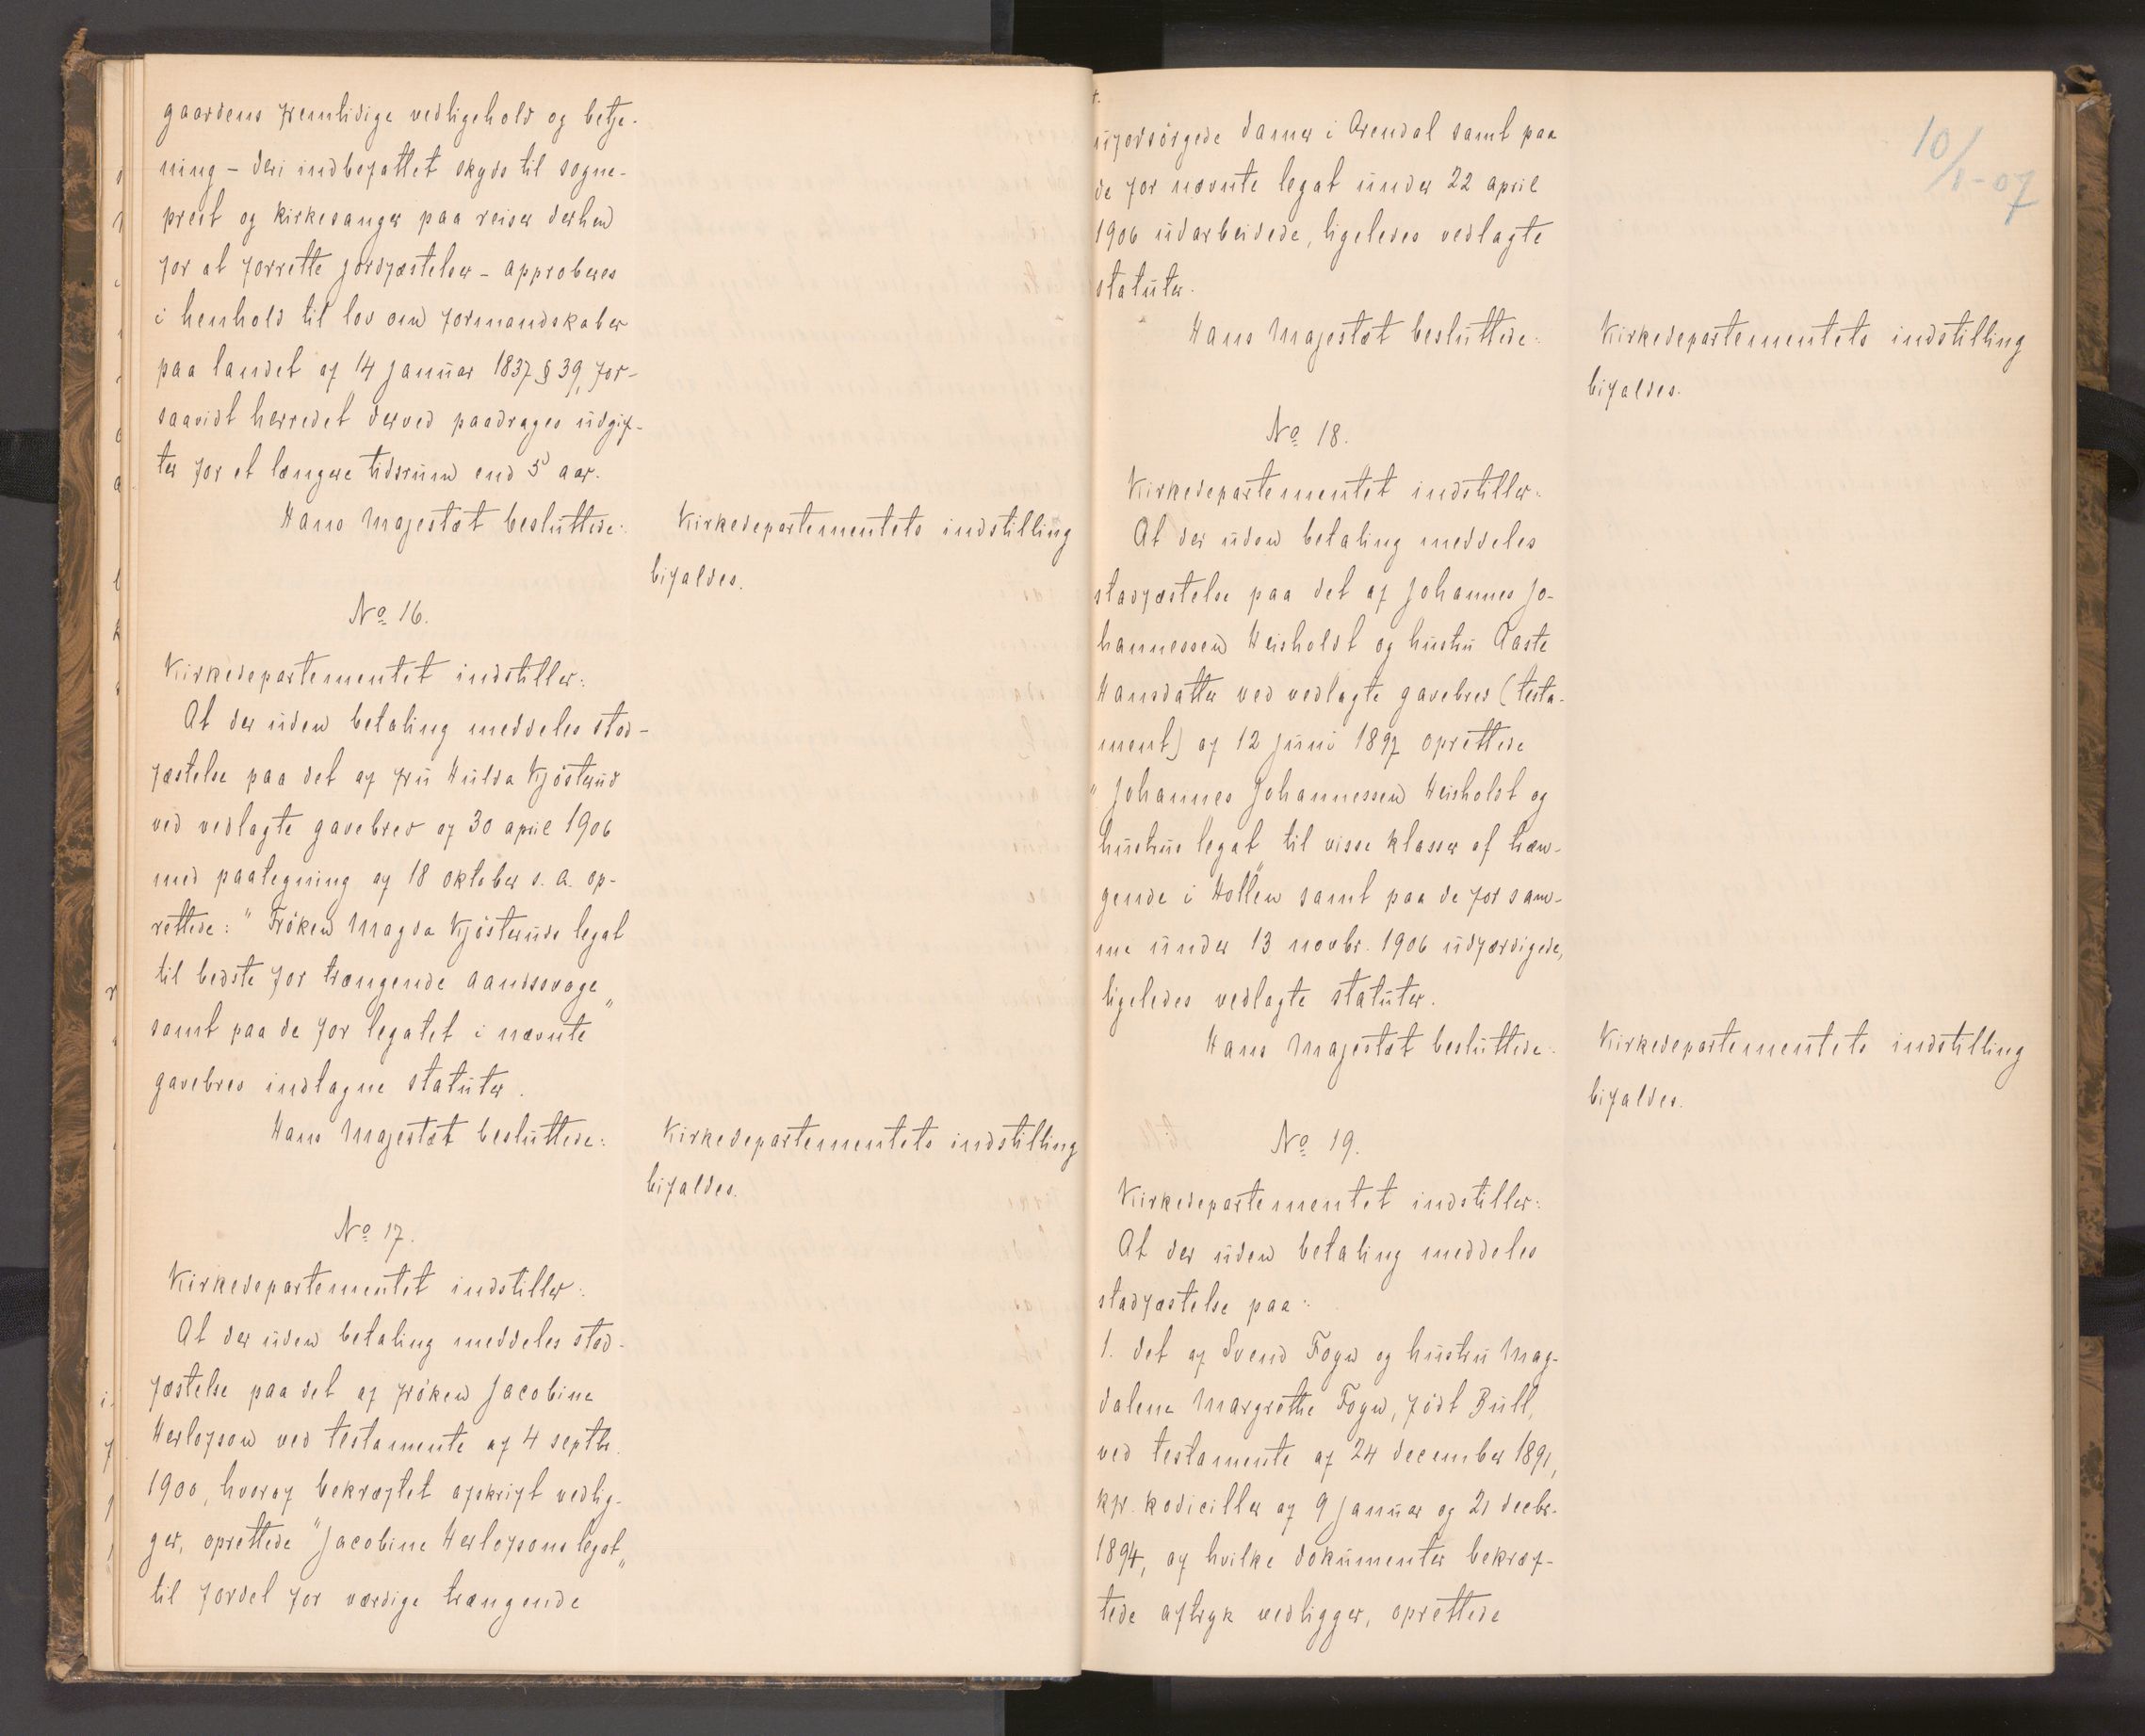 gaardens fremtidige vedligehold og betje-
ning - deri indbefattet skyds til sogne-
prest og kirkesanger paa reiser derhen
for at forrette jordfæstelser - approberes
i henhold til lov om formandskaber
paa landet af 14 januar 1837 § 39, for-
saavidt herredet derved paadrages udgif-
ter for et længere tidsrum end 5 aar.
Hans Majestæt besluttede:
Kirkedepartementets indstilling
bifaldes.
No 16.
Kirkedepartementet indstiller:
At der uden betaling meddeles stad-
fæstelse paa det af fru Hulda Kjøsterud
ved vedlagte gavebrev af 30 april 1906
med paategning af 18 oktober s. a. op-
rettede: "Frøken Magda Kjøsteruds legat
til bedste for trængende aandssvage"
samt paa de for legatet i nævnte
gavebrev indtagne statuter.
Hans Majestæt besluttede:
Kirkedepartementets indstilling
bifaldes.
No 17.
Kirkedepartementet indstiller:
At der uden betaling meddeles stad-
fæstelse paa det af frøken Jacobine
Herlofson ved testamente af 4 septbr.
1900, hvoraf bekræftet afskrift vedlig-
ger, oprettede "Jacobine Herlofsons legat"
til fordel for værdige trængende
10/1-07
uforsørgede damer i Arendal samt paa
de for nævnte legat under 22 april
1906 udarbeidede, ligeledes vedlagte
statuter.
Hans Majestæt besluttede:
Kirkedepartementets indstilling
bifaldes.
No 18.
Kirkedepartementet indstiller:
At der uden betaling meddeles
stadfæstelse paa det af Johannes Jo-
hannessen Heisholdt og hustru Aaste
Hansdatter ved vedlagte gavebrev (testa-
ment) af 12 juni 1897 oprettede
"Johannes Johannessen Heisholdt og
hustrus legat" til visse klasser af træn-
gende i Hollen samt paa de for sam-
me under 13 novbr. 1906 udfærdigede,
ligeledes vedlagte statuter.
Hans Majestæt besluttede:
Kirkedepartementets indstilling
bifaldes.
No 19.
Kirkedepartementet indstiller:
At der uden betaling meddeles
stadfæstelse paa:
1. det af Svend Foyn og hustru Mag-
dalene Margrethe Foyn, født Bull,
ved testamente af 24 december 1891,
kfr. kodiciller af 9 januar og 21 decbr.
1894, af hvilke dokumenter bekræf-
tede aftryk vedligger, oprettede